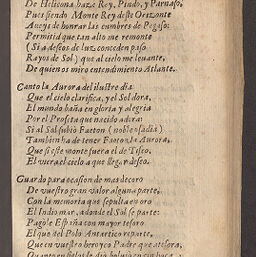 De Helicona haze Rey, Pindo, y Parnaso.
Pues siendo Monte Rey deste Orizonte
Aueys de honrar las cumbres de Pegaso:
Permitid que tan alto me remonte
(Si a deseos de luz conceden paso
Rayos de Sol) que al cielo me leuante,
De quien os miro entendimiento Atlante.
Canto la Aurora del ilustre dia
Que el cielo clarifica, y el Sol dora,
El mundo baña en gloria y alegria
Por el Profeta que nacido adora:
Si al Sol subio Faeton (noble osadia)
Tambien ha de tener Faeton la Aurora.
Que si este monte fuera el de Tifeo.
El viera el cielo a que llegar deseo.
Guardo para ocasion de mas decoro
De vuestro gran valor alguna parte,
Con la memoria que sepulta en oro
El Indio mar, adonde el Sol se parte:
Pagòle España con mayor tesoro
El que del Polo Antartico reparte,
Que en vuestro heroyco Padre que atesora,